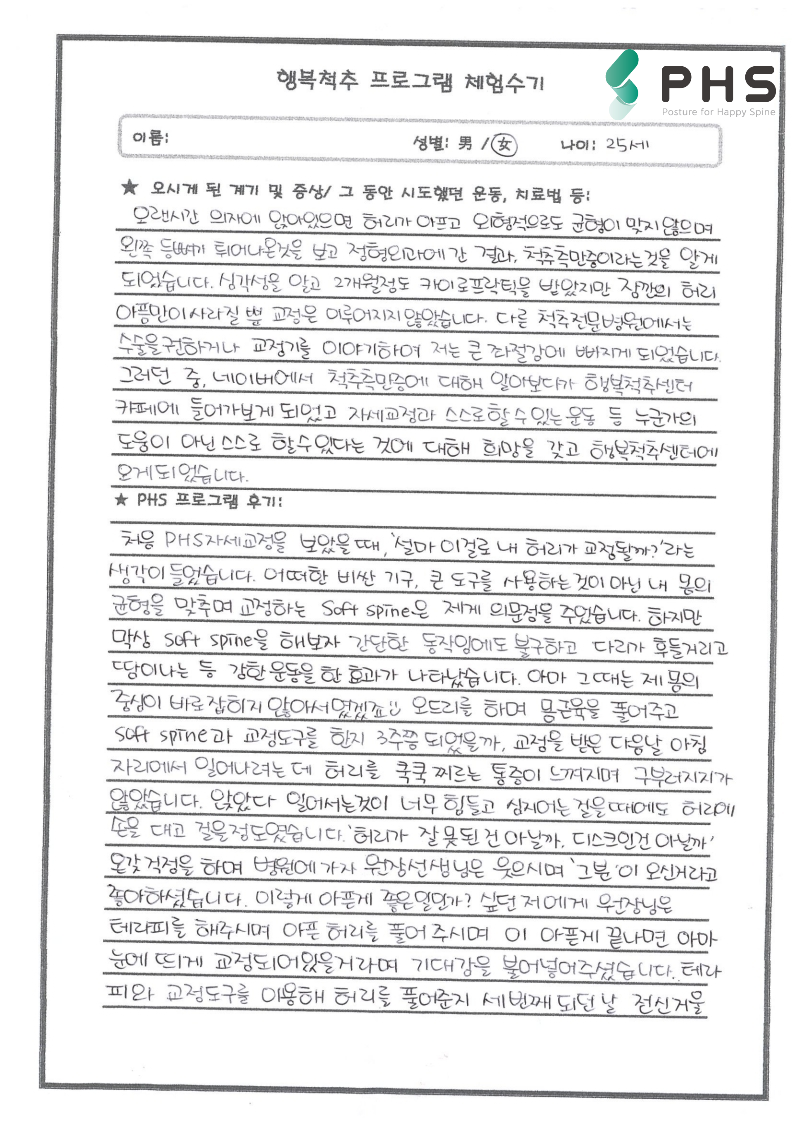 행복척추 프로그램 체험수기
PHS
Posture for Happy Spine
이름: 성별: 男 / 女 나이: 25세
★ 오시게 된 계기 및 증상/ 그 동안 시도했던 운동, 치료법 등:
오랜시간 의자에 앉아있으면 허리가 아프고 외형적으로도 균형이 맞지 않으며
왼쪽 등뼈가 튀어나온것을 보고 정형외과에 간 결과, 척추측만증이라는것을 알게
되었습니다. 심각성을 알고 2개월정도 카이로프락틱을 받았지만 잠깐의 허리
아픔만이 사라질 뿐 교정은 이루어지지 않았습니다. 다른 척추전문병원에서는
수술을 권하거나 교정기를 이야기하여 저는 큰 좌절감에 빠지게 되었습니다.
그러던 중, 네이버에서 척추측만증에 대해 알아보다가 행복척추센터
카페에 들어가보게 되었고 자세교정과 스스로할 수 있는 운동 등 누군가의
도움이 아닌 스스로 할 수 있다는 것에 대해 희망을 갖고 행복척추센터에
오게 되었습니다.
★ PHS 프로그램 후기:
처음 PHS자세교정을 보았을 때, '설마 이걸로 내 허리가 교정될까?'라는
생각이 들었습니다. 어떠한 비싼 기구, 큰 도구를 사용하는 것이 아닌 내 몸의
균형을 맞추며 교정하는 Soft spine은 제게 의문점을 주었습니다. 하지만
막상 soft spine을 해보자 간단한 동작임에도 불구하고 다리가 후들거리고
땀이나는 등 강한 운동을 한 효과가 나타났습니다. 아마 그 때는 제 몸의
중심이 바로 잡히지 않아서였겠죠 오드리를 하며 몸근육을 풀어주고
soft spine과 교정도구를 한지 3주쯤 되었을까, 교정을 받은 다음날 아침
자리에서 일어나려는데 허리를 쿡쿡 찌르는 통증이 느껴지며 구부러지지가
않았습니다. 앉았다 일어서는것이 너무 힘들고 심지어는 걸을 때에도 허리에
손을 대고 걸을 정도였습니다. '허리가 잘못된 건 아닐까, 디스크인건 아닐까'
온갖 걱정을 하며 병원에 가자 원장선생님은 웃으시며 '그분'이 오신거라고
좋아하셨습니다. 이렇게 아픈게 좋은일인가? 싶던 저에게 우원장님은
테라피를 해주시며 아픈 허리를 풀어 주시며 이 아픈게 끝나면 아마
눈에 띄게 교정되어있을거라며 기대감을 불어넣어주셨습니다. 테라
피와 교정도구를 이용해 허리를 풀어준지 세번째 되던 날 전신거울